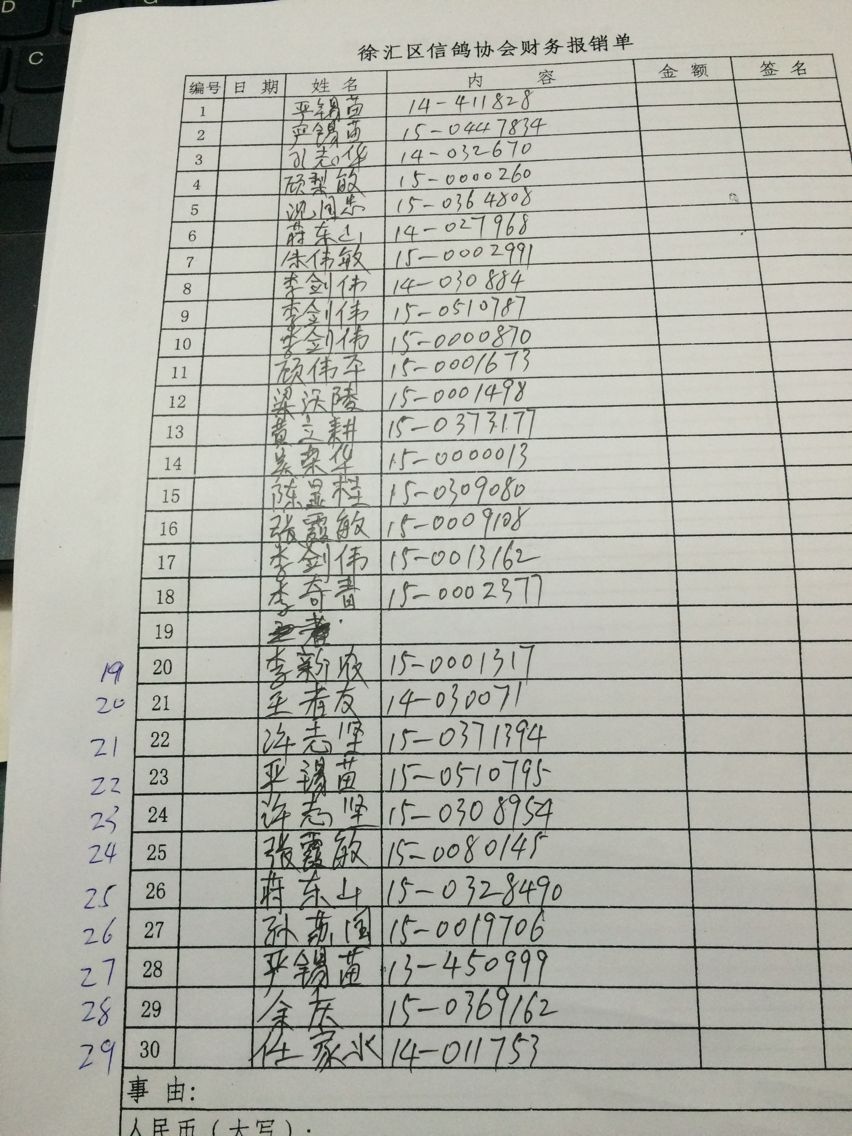 徐汇区信鸽协会财务报销单
编号 日 期 姓 名 内 容 金 额 签 名
1 严锡苗 14-411828
2 严锡苗 15-0447834
3 孔志华 14-032670
4 顾梨敏 15-0000260
5 沈国忠 15-0364808
6 蒋东山 14-027968
7 朱伟敏 15-0002991
8 李剑伟 14-030884
9 李剑伟 15-0510787
10 李剑伟 15-0000870
11 顾伟平 15-0001673
12 梁沃陵 15-0001498
13 黄立耕 15-0373177
14 吴荣华 15-0000013
15 陈显桂 15-0309080
16 张霞敏 15-0009108
17 李剑伟 15-0013162
18 李奇青 15-0002377
19
19 20 李新成 15-0001317
20 21 王孝友 14-030071
21 22 许志坚 15-0371394
22 23 严锡苗 15-0510795
23 24 许志坚 15-0308954
24 25 张霞敏 15-0080145
25 26 蒋东山 15-0328490
26 27 孙荔国 15-0019706
27 28 严锡苗 13-450999
28 29 余庆 15-0369162
29 30 任家水 14-011753
事 由:
人民币(大写):